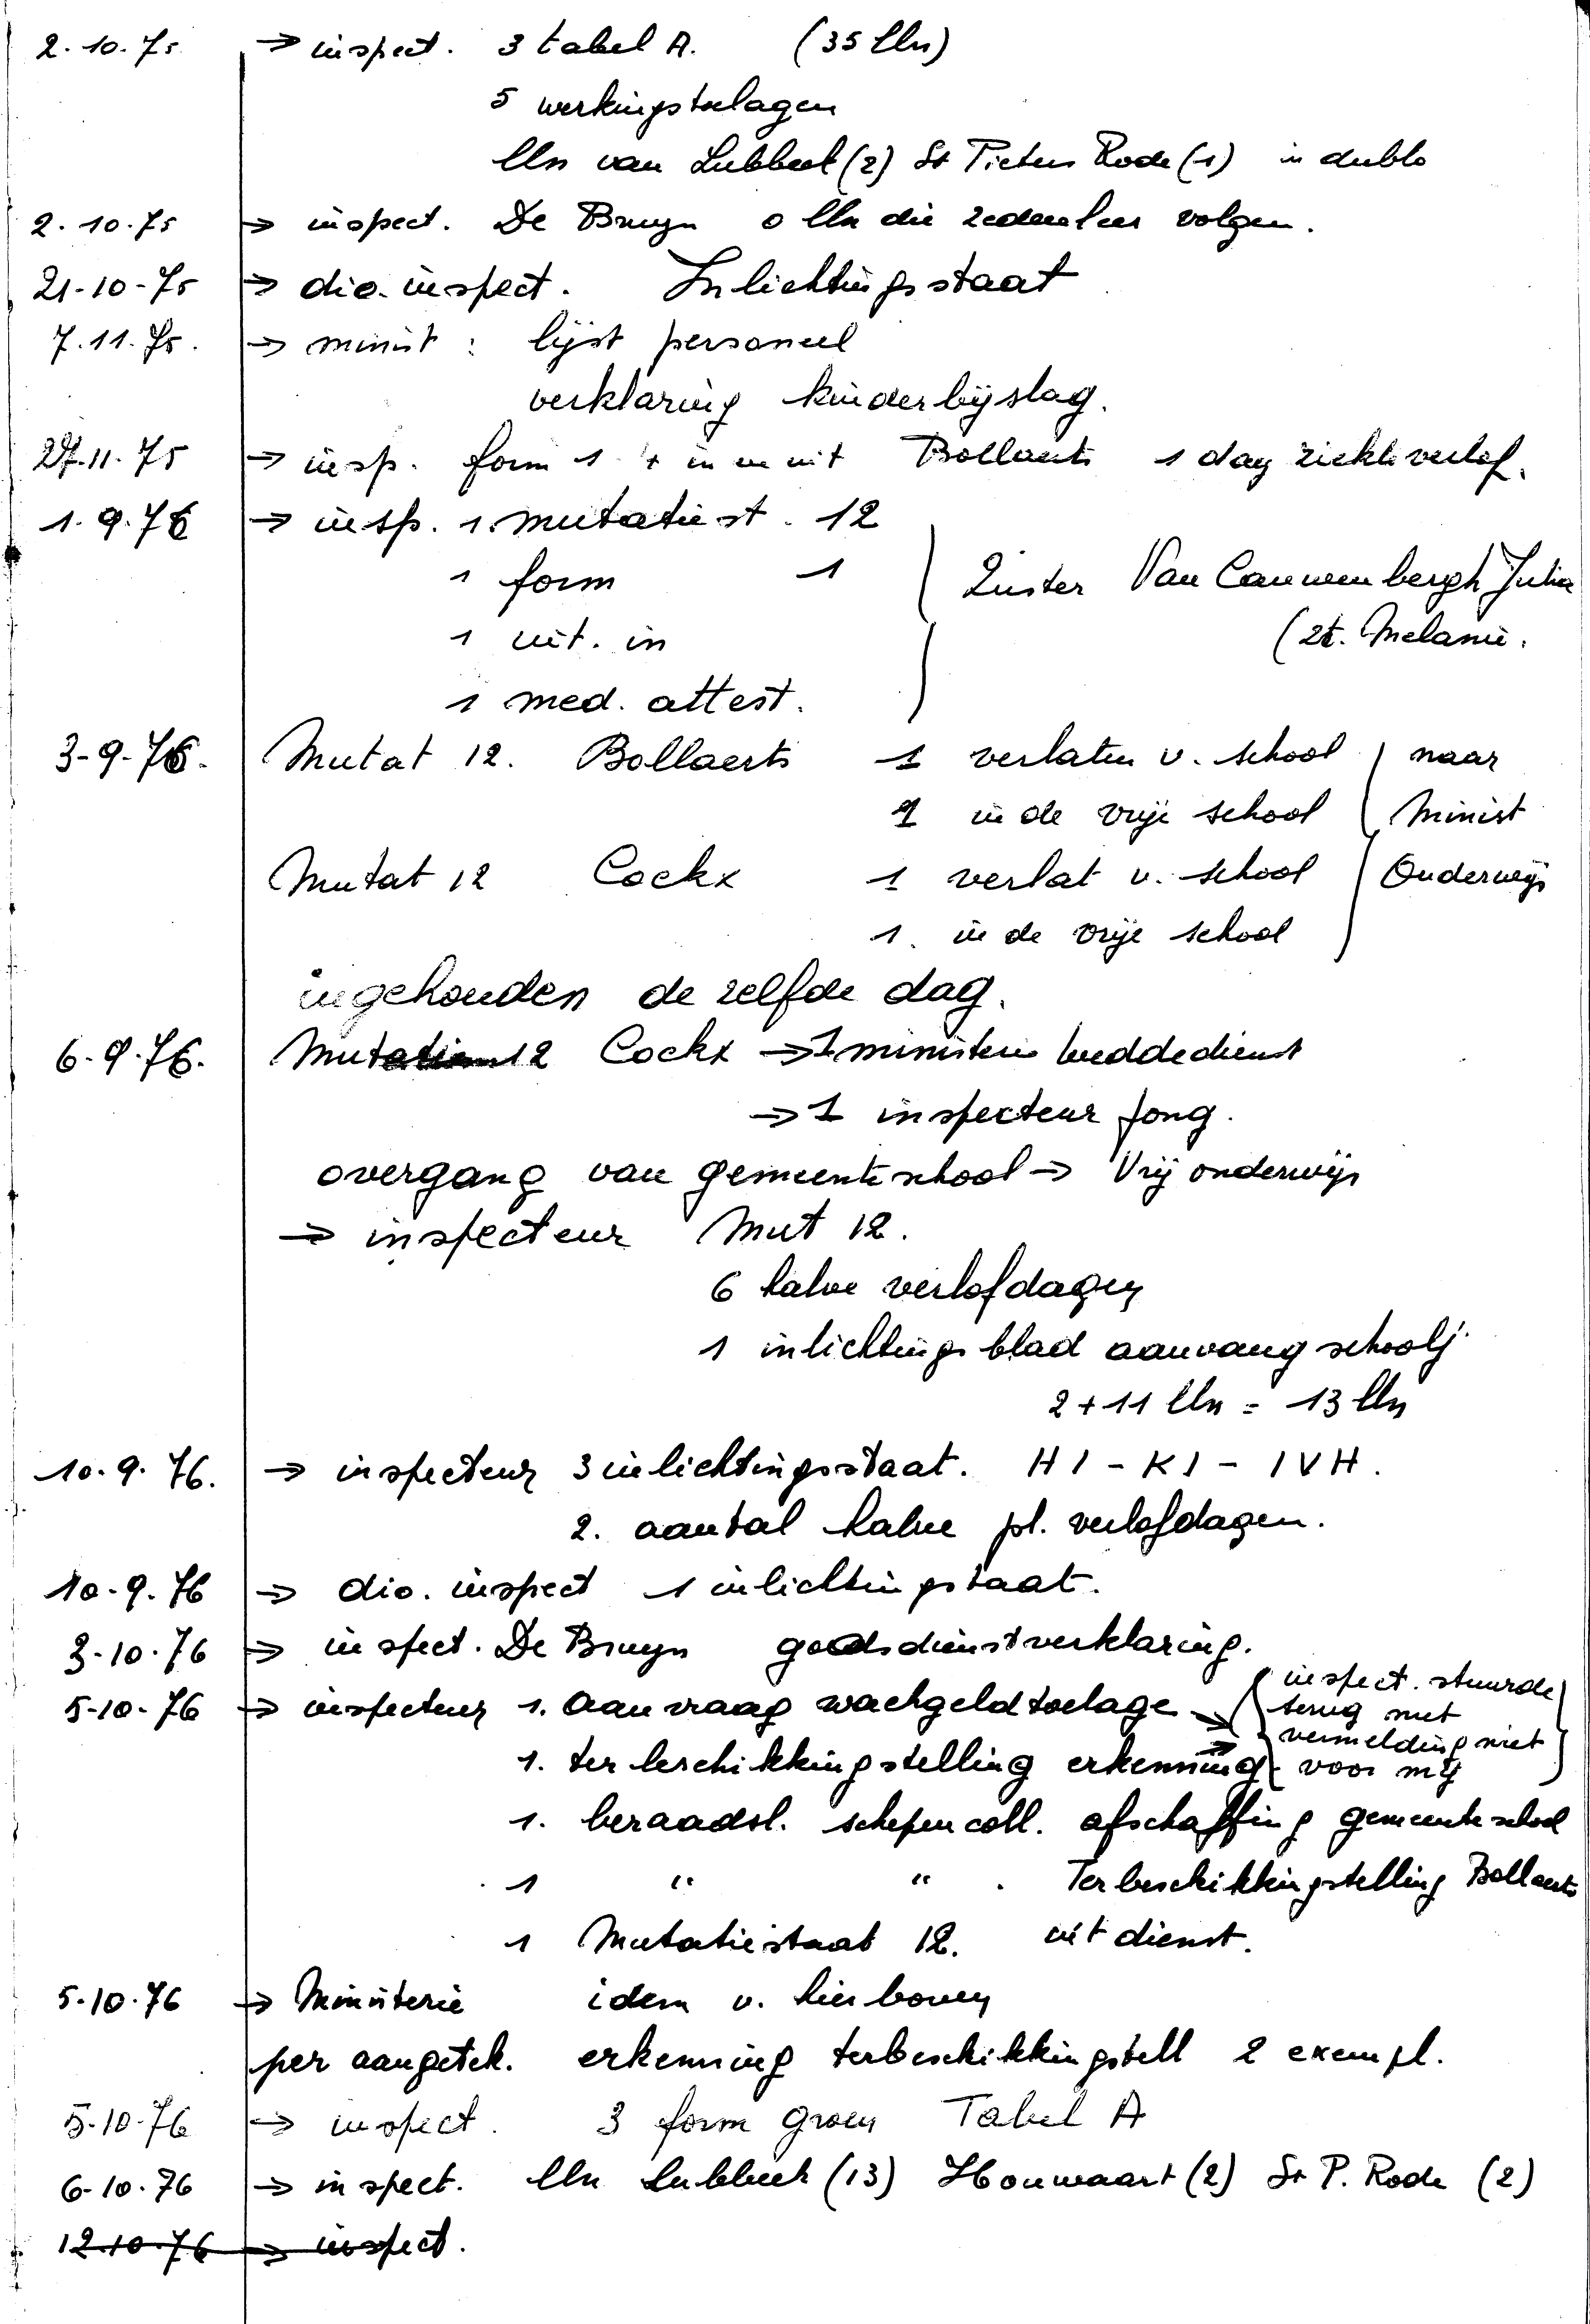 2.10.75 → inspect. 3 tabel A. (35 lln)
5 werkingstoelagen
lln van Lubbeek (2) St Pieters Rode (1) in dublo
2.10.75 → inspect. De Bruyn 0 lln die zedenleer volgen.
21-10-75 → dio. inspect. Inlichtingsstaat
7.11.75. → minist : lijst personeel
verklaring kinderbijslag.
27.11.75 → insp. form 1 + in en uit Bollaerts 1 dag ziekteverlof.
1.9.76 → insp. 1 mutatiest. 12
1 form 1 Zuster Van Cauwenbergh Julia
1 uit. in (Zr. Melanie.
1 med. attest.
3-9-76. Mutat 12. Bollaerts 1 verlaten v. school naar
1 in de vrije school Minist
Mutat 12 Cockx 1 verlat v. school Onderwijs
1. in de vrije school
ingehouden de zelfde dag.
6-9-76. Mutation 12 Cockx → 1 ministerie weddedienst
→ 1 inspecteur Jong.
overgang van gemeenteschool → Vrij onderwijs
→ inspecteur Mut 12.
6 halve verlofdagen
1 inlichtingsblad aanvang schoolj.
2 + 11 lln = 13 lln
10.9.76. → inspecteur 3 inlichtingsstaat. HI - KI - IVH.
2. aantal halve pl. verlofdagen.
10-9.76 → dio. inspect 1 inlichtingstaat.
3-10.76 → inspect. De Bruyn godsdienstverklaring.
5-10-76 → inspecteur 1. Aanvraag wachgeldtoelage → (inspect. stuurde
terug met
vermelding niet
1. ter beschikkingstelling erkenning voor mij)
1. beraadsl. schepencoll. afschaffing gemeenteschool
1 " " . Terbeschikkingstelling Bollaerts
1 Mutatiestaat 12. uit dienst.
5.10.76 → Ministerie idem v. hierboven
per aangetek. erkenning terbeschikkingstell 2 exempl.
5-10-76 → inspect. 3 form groen Tabel A
6-10.76 → inspect. lln Lubbeek (13) Houwaart (2) St P. Rode (2)
12.10.76 → inspect.